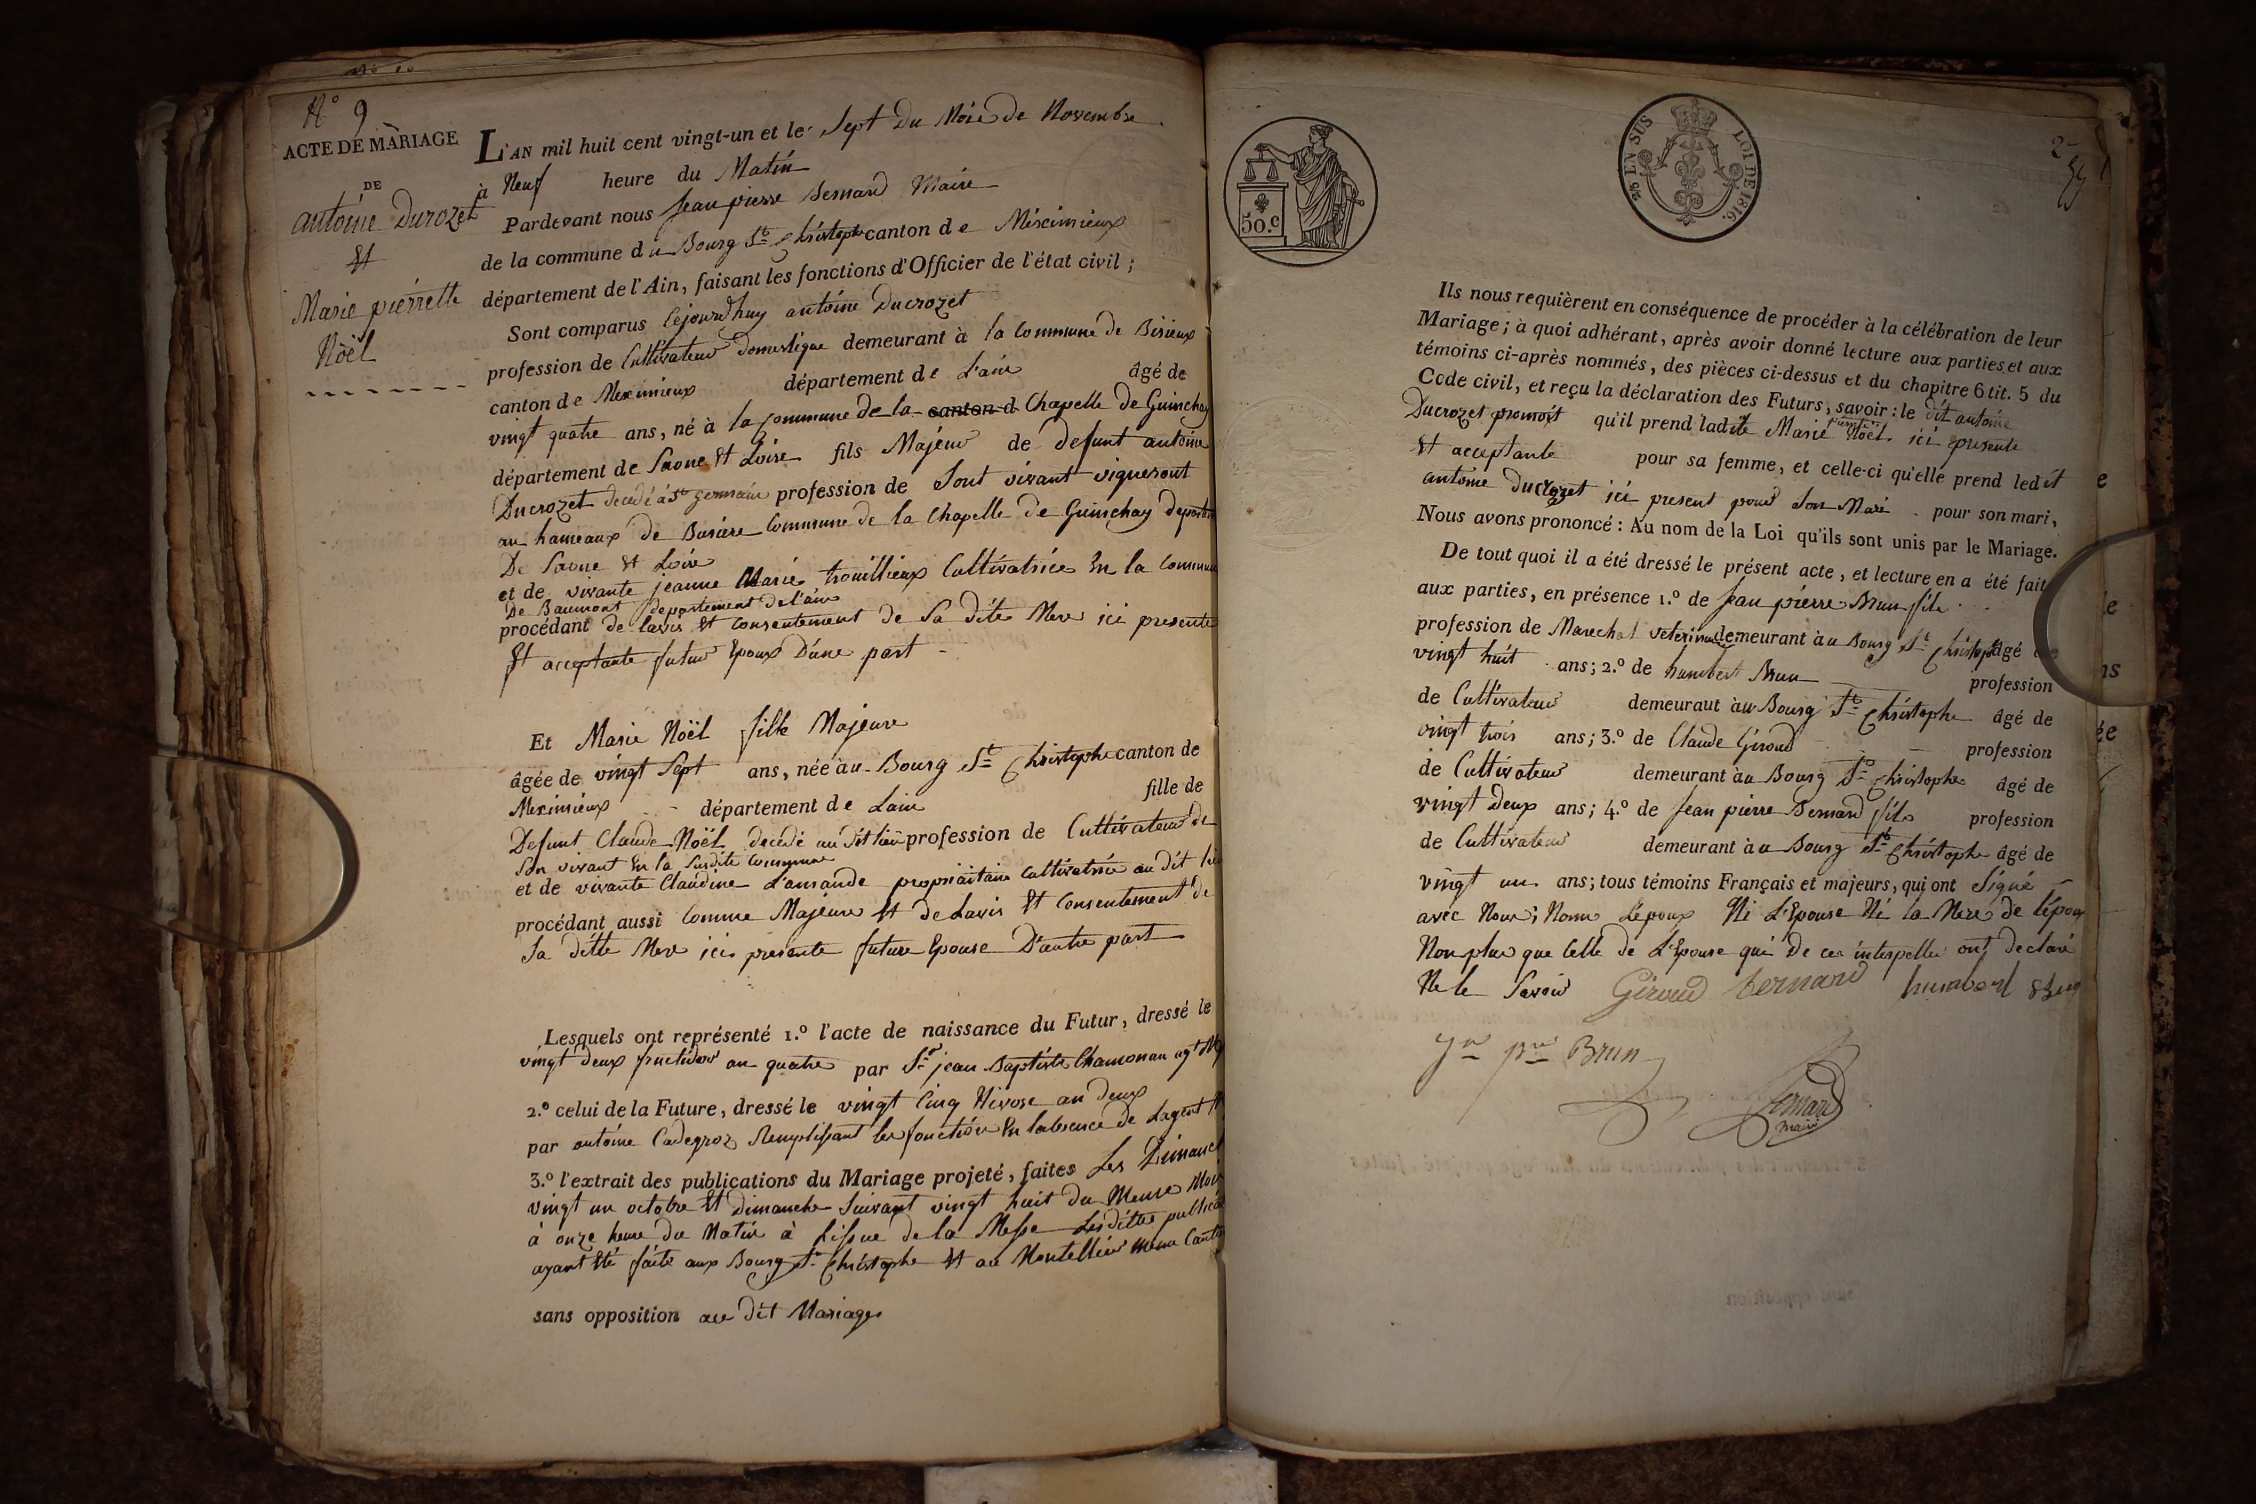 N° 9
ACTE DE MARIAGE
DE
antoine Durozet
Et
Marie pierrette
Nöël
L'AN mil huit cent vingt-un et le Sept Du Mois de Novembre
à Neuf heure du Matin
Pardevant nous Jean pierre Bernard Maire
de la commune du Bourg St Christophe canton de Méximieux
département de l'Ain, faisant les fonctions d'Officier de l'état civil;
Sont comparus Cejourdhuy antoine Ducrozet
profession de Cultivateur Domestique demeurant à la Commune de Birieux
canton de Meximieux département de L'ain âgé de
vingt quatre ans, né à la Commune de la canton d Chapelle de Guinchay
département de Saone Et Loire fils Majeur de defunt antoine
Ducrozet decedé à St germain profession de Sont vivant vigneront
au hameaux de Busiere Commune de la Chapelle de Guinchay
De Saone Et Loire
et de vivante jeanne Marie trouillieux Cultivatrice En la Commune
De Baumont departement de l'ain
procédant de lavis Et consentement de Sa dite Mere ici presente
Et acceptante futur Epoux D'une part
Et Marie Nöël fille Majeure
âgée de vingt Sept ans, née au Bourg St Christophe canton de
Meximieux département de Lain fille de
Defunt Claude Nöël decedé au dit lieu profession de Cultivateur de
Son vivant En la Susdite Commune
et de vivante Claudine Lamande propriaitaire Cultivatrice au dit
procédant aussi Comme Majeure Et de Lavis Et Consentement de
Sa ditte Mere ici presente future Epouse D'autre part
Lesquels ont représenté 1.º l'acte de naissance du Futur, dressé le
vingt deux fructidor an quatre par Sr jean Baptiste Chamonan
2.º celui de la Future, dressé le vingt Cinq Nivose an deux
par antoine Cadegroz Remplissant les fonction En labsence de Lagent
3.º l'extrait des publications du Mariage projeté, faites Les
vingt un octobre Et dimanche Suivant vingt huit du Meme Mois
à onze heure du Matin à Lissue de la Messe Lesdites
ayant Eté faite aux Bourg St Christophe Et au Montellier meme
sans opposition au dit Mariage
50.c
25 EN SUS
LOI DE 1816.
Ils nous requièrent en conséquence de procéder à la célébration de leur
Mariage; à quoi adhérant, après avoir donné lecture aux parties et aux
témoins ci-après nommés, des pièces ci-dessus et du chapitre 6 tit. 5 du
Code civil, et reçu la déclaration des Futurs, savoir: le dit antoine
Ducrozet promoit qu'il prend ladite Marie Noël ici presente
Et acceptante pour sa femme, et celle-ci qu'elle prend ledit
antoine ducrozet ici present pour Son Mari pour son mari,
Nous avons prononcé: Au nom de la Loi qu'ils sont unis par le Mariage.
De tout quoi il a été dressé le présent acte, et lecture en a été fait
aux parties, en présence 1.º de Jean pierre Brun fils
profession de Marechal veterinaire demeurant à au Bourg St Christophe âgé de
vingt huit ans; 2.º de humbert Brun profession
de Cultivateur demeurant à au Bourg St Christophe âgé de
vingt trois ans; 3.º de Claude Giroud profession
de Cultivateur demeurant à au Bourg St Christophe âgé de
vingt Deux ans; 4.º de Jean pierre Bernard fils profession
de Cultivateur demeurant à au Bourg St Christophe âgé de
vingt un ans; tous témoins Français et majeurs, qui ont Signé
avec Nous; Nomm Lepoux Ni L'Epouse Né la Mere de lépoux
Non plus que Celle de L'Epouse qui De ce interpellé ont declaré
Ne le Savoir Giroud Bernard humbert Brun
Jn pre Brun
Bernard
maire